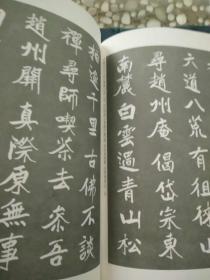 六道八荒有徂徠山
尋趙州庵偈岱宗東
南麓白雲過青山松
相逢千里古佛不談
禪尋師喫茶去叅吾
趙州關真際原無事